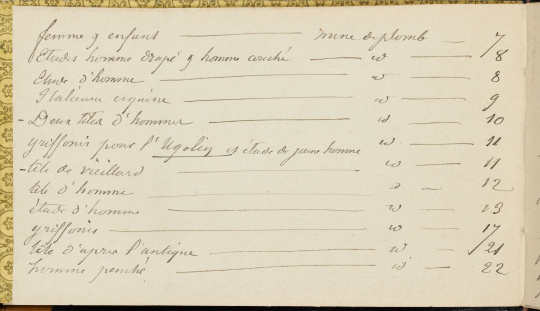 femme & enfant — mine de plomb — 7
Etudes homme drapé & homme couché — id — 8
Etude d'homme — id — 8
Italienne esquisse — id — 9
- Deux têtes d'homme — id — 10
griffonis pour l'Ugolin & étude de jeune homme — id — 11
- tête de vieillard — id — 11
tête d'homme — id — 12
étude d'homme — id — 13
griffonis — id — 17
tête d'après l'antique — id — 21
homme penché — id — 22